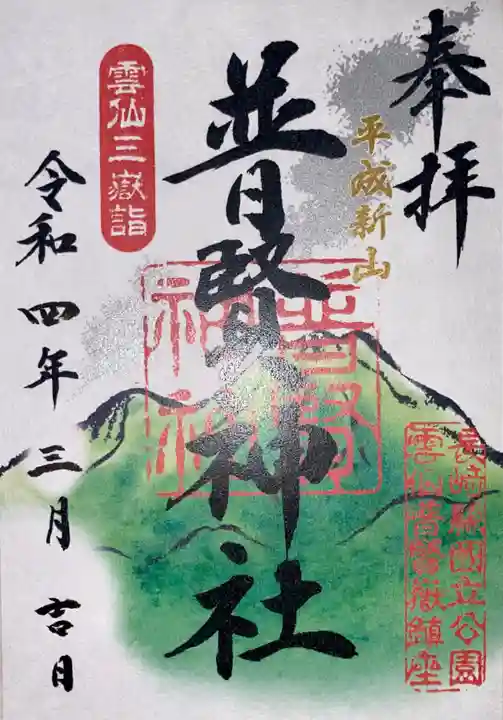 奉拝
平成新山
普賢神社
普賢神社
長崎県国立公園
雲仙普賢嶽鎮座
雲仙三嶽詣
令和四年三月吉日